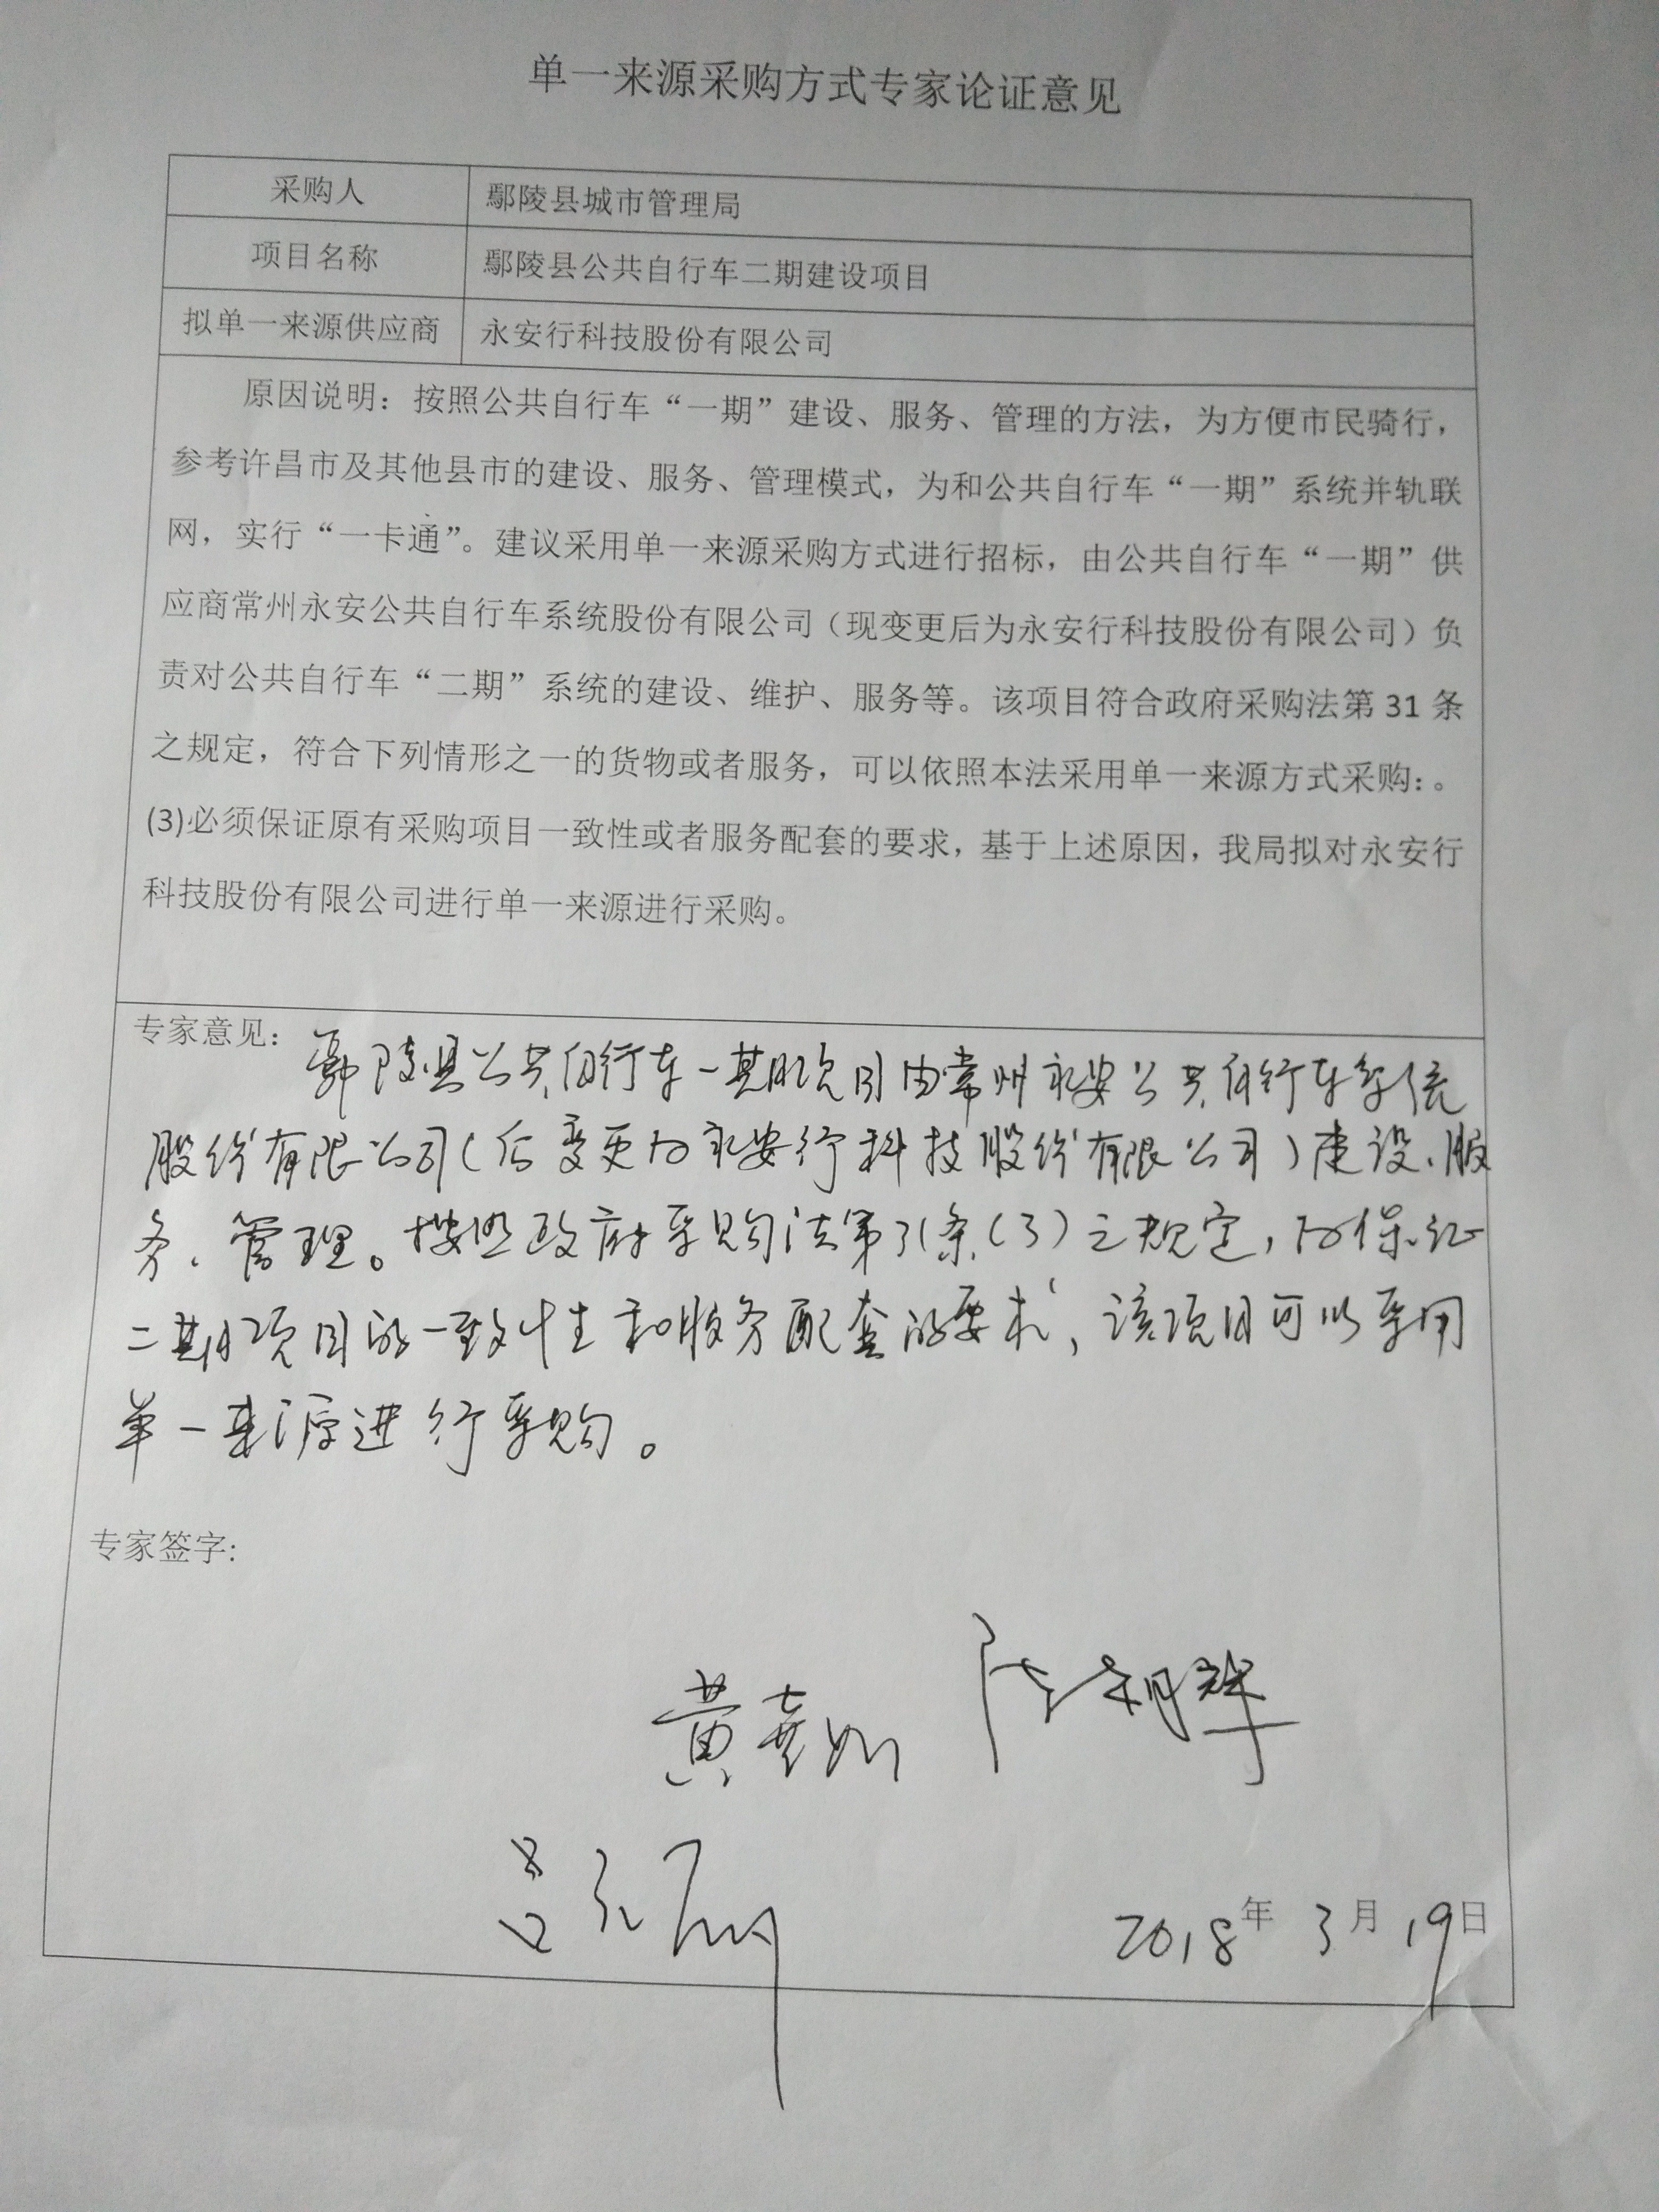 单一来源采购方式专家论证意见
采购人 鄢陵县城市管理局
项目名称 鄢陵县公共自行车二期建设项目
拟单一来源供应商 永安行科技股份有限公司
原因说明：按照公共自行车“一期”建设、服务、管理的方法，为方便市民骑行，
参考许昌市及其他县市的建设、服务、管理模式，为和公共自行车“一期”系统并轨联
网，实行“一卡通”。建议采用单一来源采购方式进行招标，由公共自行车“一期”供
应商常州永安公共自行车系统股份有限公司（现变更后为永安行科技股份有限公司）负
责对公共自行车“二期”系统的建设、维护、服务等。该项目符合政府采购法第 31 条
之规定，符合下列情形之一的货物或者服务，可以依照本法采用单一来源方式采购：。
(3)必须保证原有采购项目一致性或者服务配套的要求，基于上述原因，我局拟对永安行
科技股份有限公司进行单一来源进行采购。
专家意见：鄢陵县公共自行车一期项目由常州永安公共自行车系统
股份有限公司（后变更为永安行科技股份有限公司）建设、服
务、管理。按照政府采购法第31条（3）之规定，为保证
二期项目的一致性和服务配套的要求，该项目可以采用
单一来源进行采购。
专家签字：
2018年 3月 19日